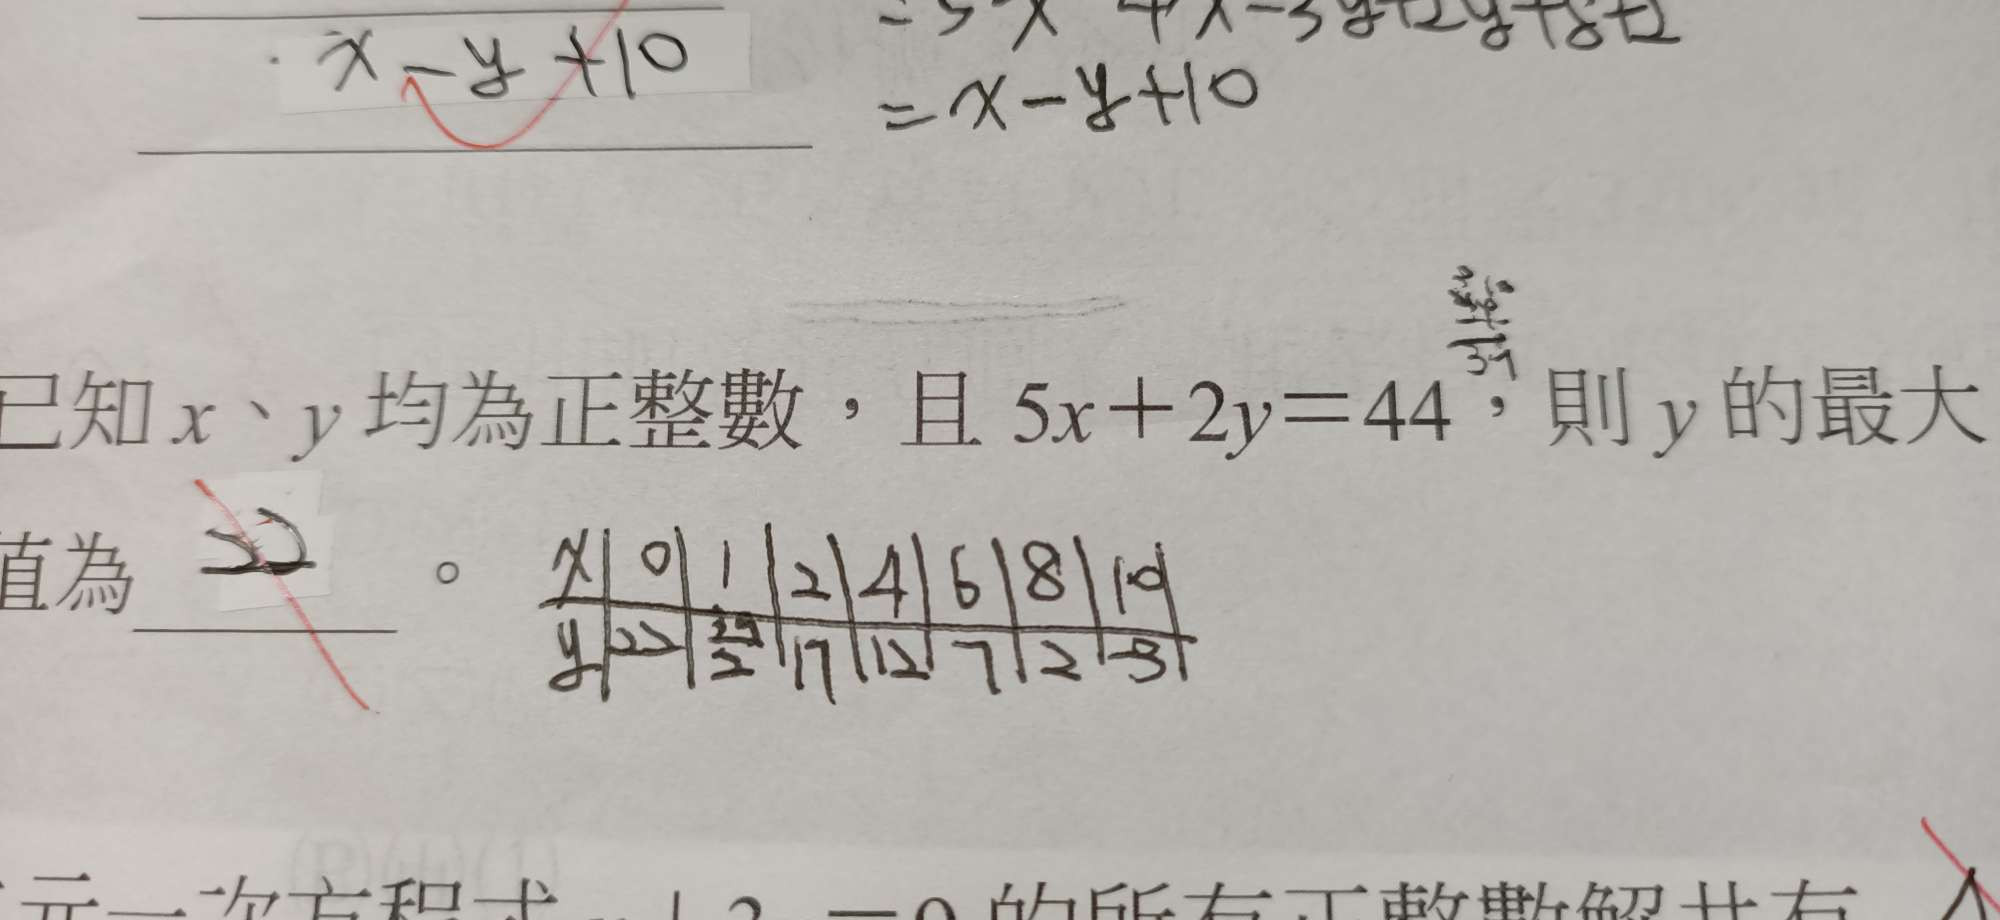 x-y+10
=x-y+10
已知 x、y 均為正整數，且 5x+2y=44，則 y 的最大
值為 22 。
x 0 1 2 4 6 8 10
y 22 39/2 17 12 7 2 -3
元一次方程式 的所有正整數解共有